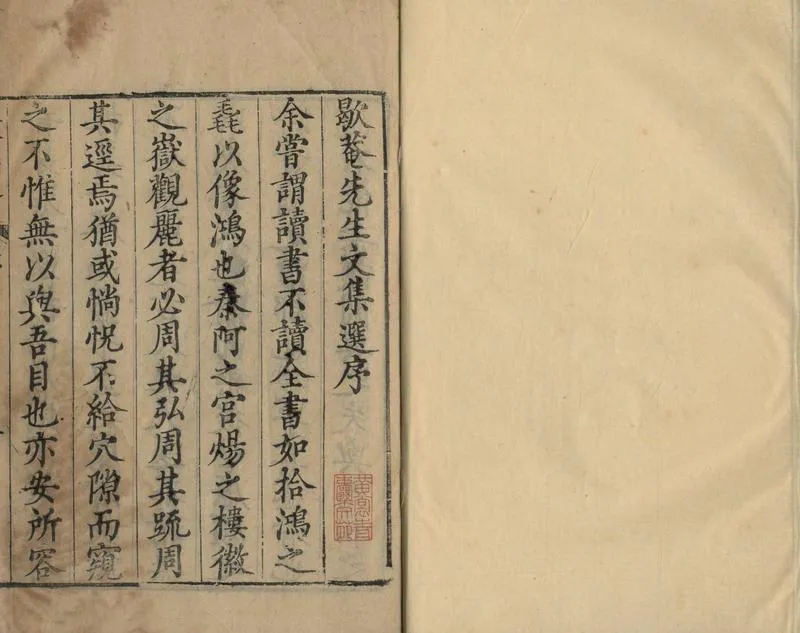 歇菴先生文集選序
余嘗謂讀書不讀全書如拾鴻之
毳以像鴻也秦阿之宮煬之樓徽
之嶽觀麗者必周其弘周其䟽周
其逕焉猶或惝怳不給穴隙而窺
之不惟無以與吾目也亦安所容